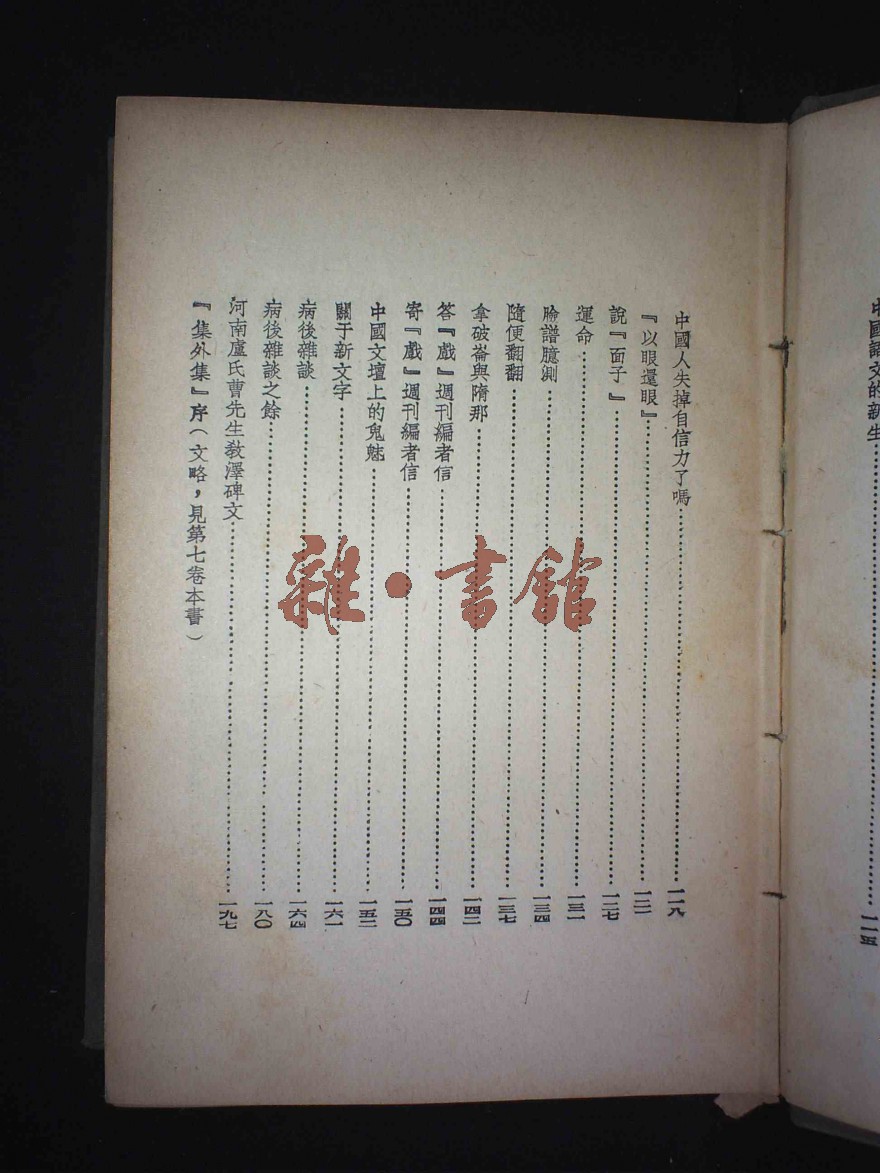 中國語文的新生……一一五
中國人失掉自信力了嗎……一一八
『以眼還眼』……一二一
說『面子』……一二七
運命……一三一
臉譜臆測……一三四
隨便翻翻……一三七
拿破崙與隋那……一四二
答『戲』週刊編者信……一四四
寄『戲』週刊編者信……一五〇
中國文壇上的鬼魅……一五二
關于新文字……一六一
病後雜談……一六四
病後雜談之餘……一八〇
河南盧氏曹先生敎澤碑文……一九七
『集外集』序（文略，見第七卷本書）
雜·書館